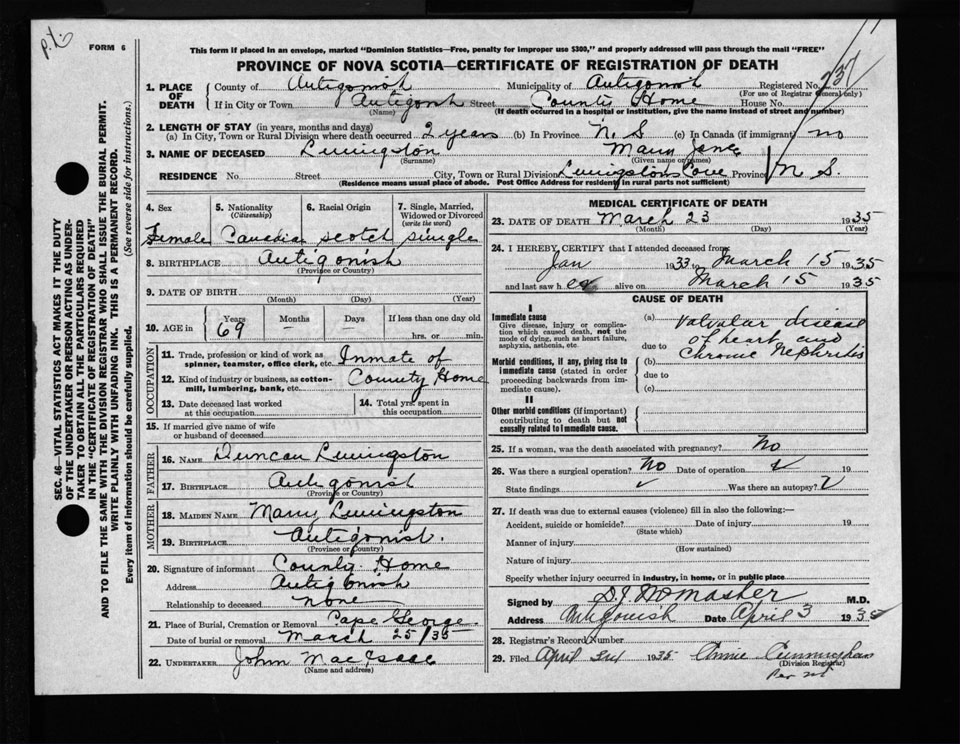 p.t.
FORM 6
This form if placed in an envelope, marked "Dominion Statistics—Free, penalty for improper use $300," and properly addressed will pass through the mail "FREE"
PROVINCE OF NOVA SCOTIA—CERTIFICATE OF REGISTRATION OF DEATH
237
1. PLACE OF DEATH County of Antigonish Municipality of Antigonish Registered No.
(For use of Registrar General only)
If in City or Town Antigonish Street County Home House No.
(Name) (If death occurred in a hospital or institution, give the name instead of street and number)
2. LENGTH OF STAY (in years, months and days)
(a) In City, Town or Rural Division where death occurred 2 years (b) In Province N. S (c) In Canada (if immigrant) no
3. NAME OF DECEASED Livingston Mary Jane
(Surname) (Given name or names)
RESIDENCE No. Street City, Town or Rural Division Livingstons Cove Province N S.
(Residence means usual place of abode. Post Office Address for residents in rural parts not sufficient)
4. Sex 5. Nationality (Citizenship) 6. Racial Origin 7. Single, Married, Widowed or Divorced (write the word)
Female Canadian Scotch single
8. BIRTHPLACE Antigonish
(Province or Country)
9. DATE OF BIRTH
(Month) (Day) (Year)
10. AGE in Years Months Days If less than one day old
69 — — hrs. or min.
OCCUPATION
11. Trade, profession or kind of work as spinner, teamster, office clerk, etc. Inmate of
12. Kind of industry or business, as cotton-mill, lumbering, bank, etc. County Home
13. Date deceased last worked at this occupation 14. Total yrs. spent in this occupation
15. If married give name of wife or husband of deceased
FATHER
16. NAME Duncan Livingston
17. BIRTHPLACE Antigonish
(Province or Country)
MOTHER
18. MAIDEN NAME Mary Livingston
19. BIRTHPLACE Antigonish.
(Province or Country)
20. Signature of informant County Home
Address Antigonish
Relationship to deceased none
21. Place of Burial, Cremation or Removal Cape George
Date of burial or removal March 25/35
22. UNDERTAKER John MacIsaac
(Name and address)
MEDICAL CERTIFICATE OF DEATH
23. DATE OF DEATH March 23 1935
(Month) (Day) (Year)
24. I HEREBY CERTIFY that I attended deceased from
Jan 1933 to March 15 1935
and last saw h er alive on March 15 1935
CAUSE OF DEATH
I
Immediate cause
Give disease, injury or complication which caused death, not the mode of dying, such as heart failure, asphyxia, asthenia, etc.
(a) Valvular disease
due to of heart and
Morbid conditions, if any, giving rise to immediate cause (stated in order proceeding backwards from immediate cause).
(b) Chronic Nephritis
due to
(c)
II
Other morbid conditions (if important) contributing to death but not causally related to immediate cause.
25. If a woman, was the death associated with pregnancy? No
26. Was there a surgical operation? No Date of operation 19
State findings Was there an autopsy?
27. If death was due to external causes (violence) fill in also the following:—
Accident, suicide or homicide? Date of injury 19
(State which)
Manner of injury
(How sustained)
Nature of injury
Specify whether injury occurred in industry, in home, or in public place
Signed by M.D.
Address Antigonish Date April 3 1935
28. Registrar's Record Number
29. Filed April 3rd 1935 Annie Cunningham
(Division Registrar)
SEC. 46—VITAL STATISTICS ACT MAKES IT THE DUTY
OF THE UNDERTAKER OR PERSON ACTING AS UNDER-
TAKER TO OBTAIN ALL THE PARTICULARS REQUIRED
IN THE "CERTIFICATE OF REGISTRATION OF DEATH"
AND TO FILE THE SAME WITH THE DIVISION REGISTRAR WHO SHALL ISSUE THE BURIAL PERMIT.
WRITE PLAINLY WITH UNFADING INK. THIS IS A PERMANENT RECORD.
Every item of information should be carefully supplied. (See reverse side for instructions.)